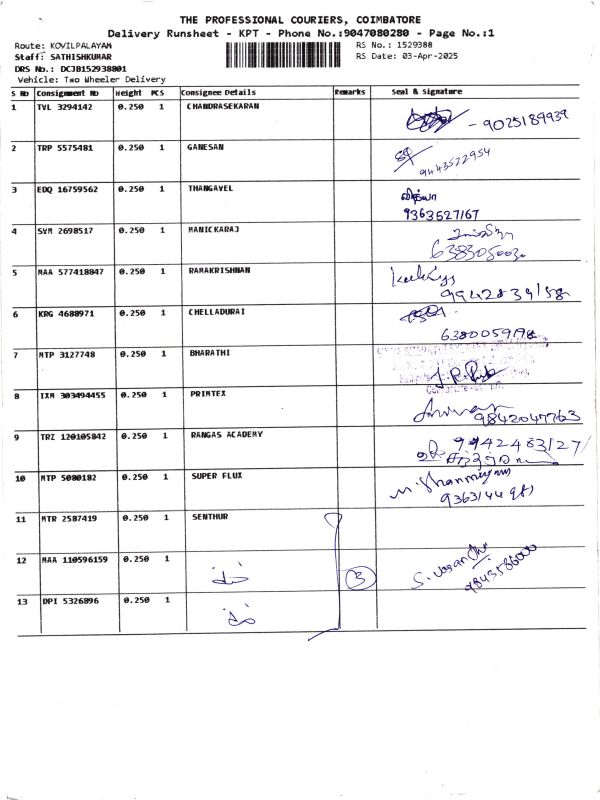 THE PROFESSIONAL COURIERS, COIMBATORE
Delivery Runsheet - KPT - Phone No.:9047080280 - Page No.:1
Route: KOVILPALAYAM
RS No.: 1529388
Staff: SATHISHKUMAR
RS Date: 03-Apr-2025
DRS No.: DCJB152938801
Vehicle: Two Wheeler Delivery
S No Consignment No Weight PCS Consignee Details Remarks Seal & Signature
1 TVL 3294142 0.250 1 CHANDRASEKARAN - 9025189939
2 TRP 5575481 0.250 1 GANESAN 9443522954
3 EDQ 16759562 0.250 1 THANGAVEL வித்யா
9363527167
4 SVM 2698517 0.250 1 MANICKARAJ
5 MAA 577418847 0.250 1 RAMAKRISHNAN
9942834158
6 KRG 4688971 0.250 1 CHELLADURAI
7 MTP 3127748 0.250 1 BHARATHI
8 IXM 303494455 0.250 1 PRIMTEX 9842047763
9 TRZ 120105842 0.250 1 RANGAS ACADEMY 9942483127
10 MTP 5080182 0.250 1 SUPER FLUX M. Shanmugam
11 MTR 2587419 0.250 1 SENTHUR
12 MAA 110596159 0.250 1 3 9843586000
13 DPI 5326896 0.250 1